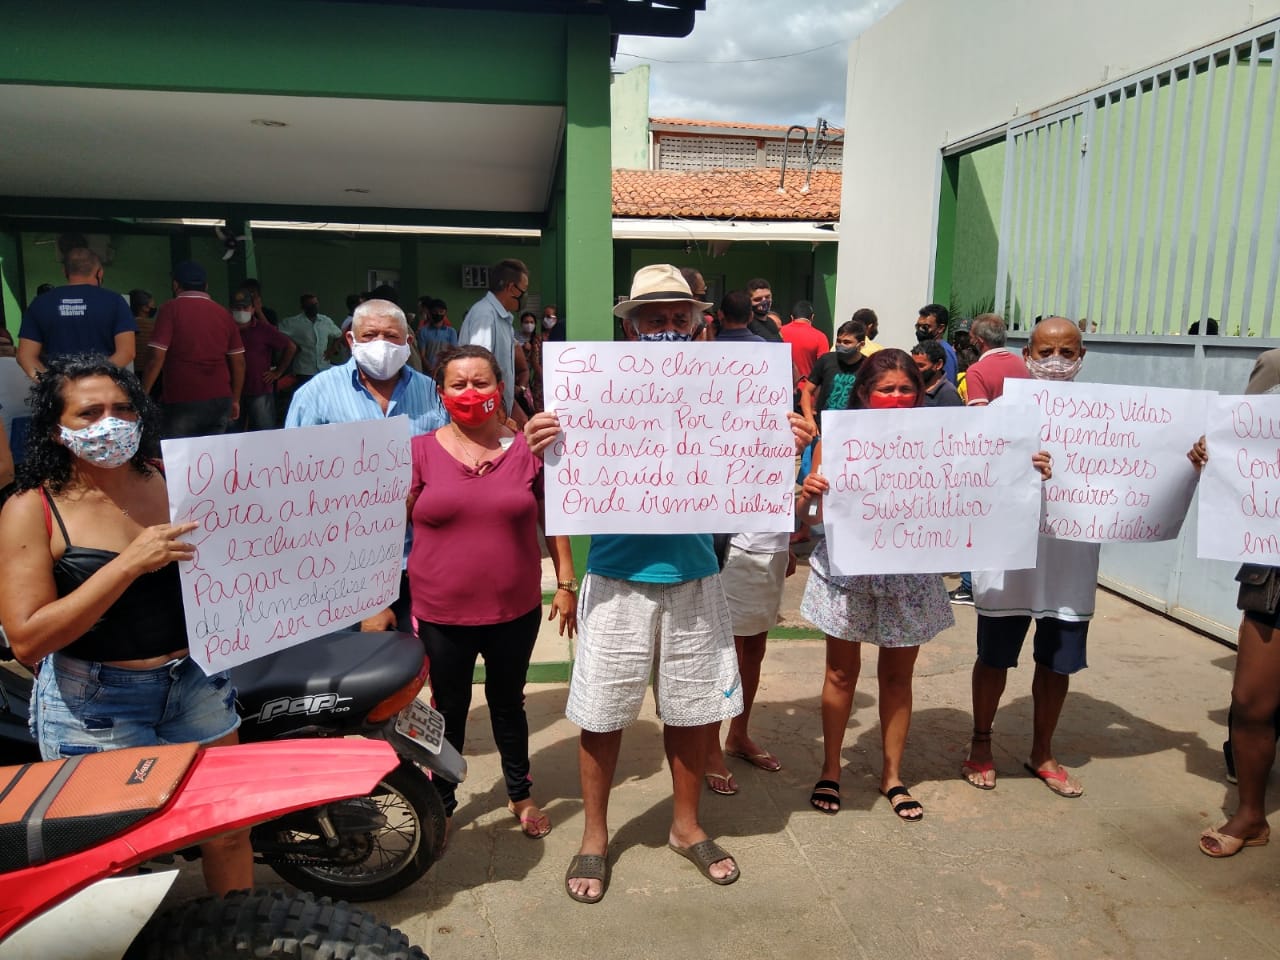 O dinheiro do SUS
Para a hemodiálise
é exclusivo Para
Pagar as sessões
de hemodiálise não
Pode ser desviado!
15
Se as clínicas
de diálise de Picos
Fecharem Por Conta
do desvio da Secretaria
de saúde de Picos
Onde iremos dialisar?
Desviar dinheiro
da Terapia Renal
Substitutiva
é Crime!
Nossas vidas
dependem
repasses
nanceiros às
icas de diálise
Qu
Con
di
em
pop
100